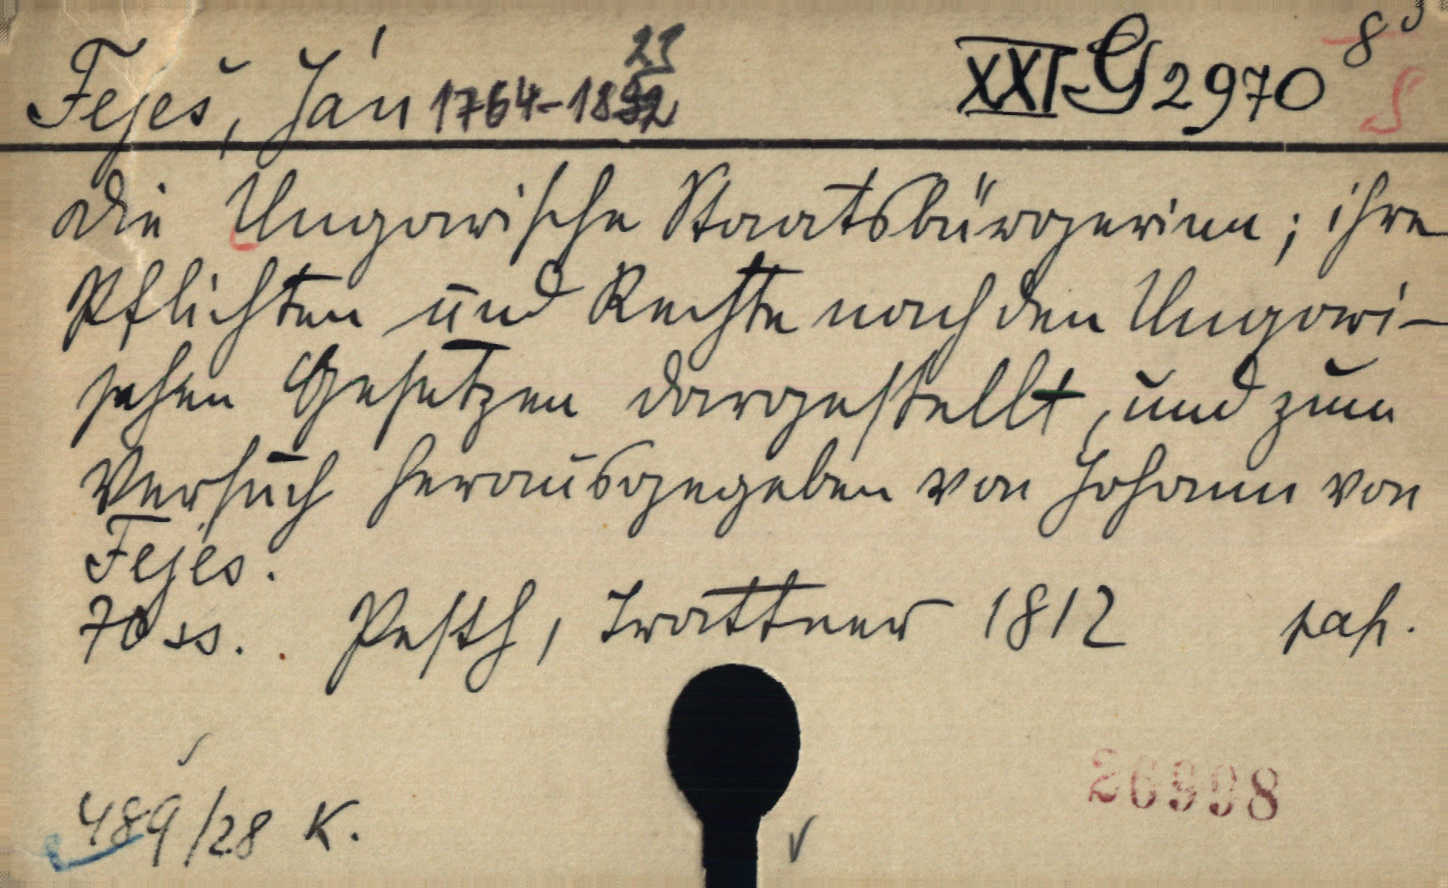 Feješ, Ján 1764-1823 XXI-G 2970 8°
Die Ungarische Staatsbürgerinn; ihre
Pflichten und Rechte nach den Ungari-
schen Gesetzen dargestellt, und zum
Versuch herausgegeben von Johann von
Fejes.
70 ss. Pesth, Trattner 1812 pap.
489/28 K.
26998